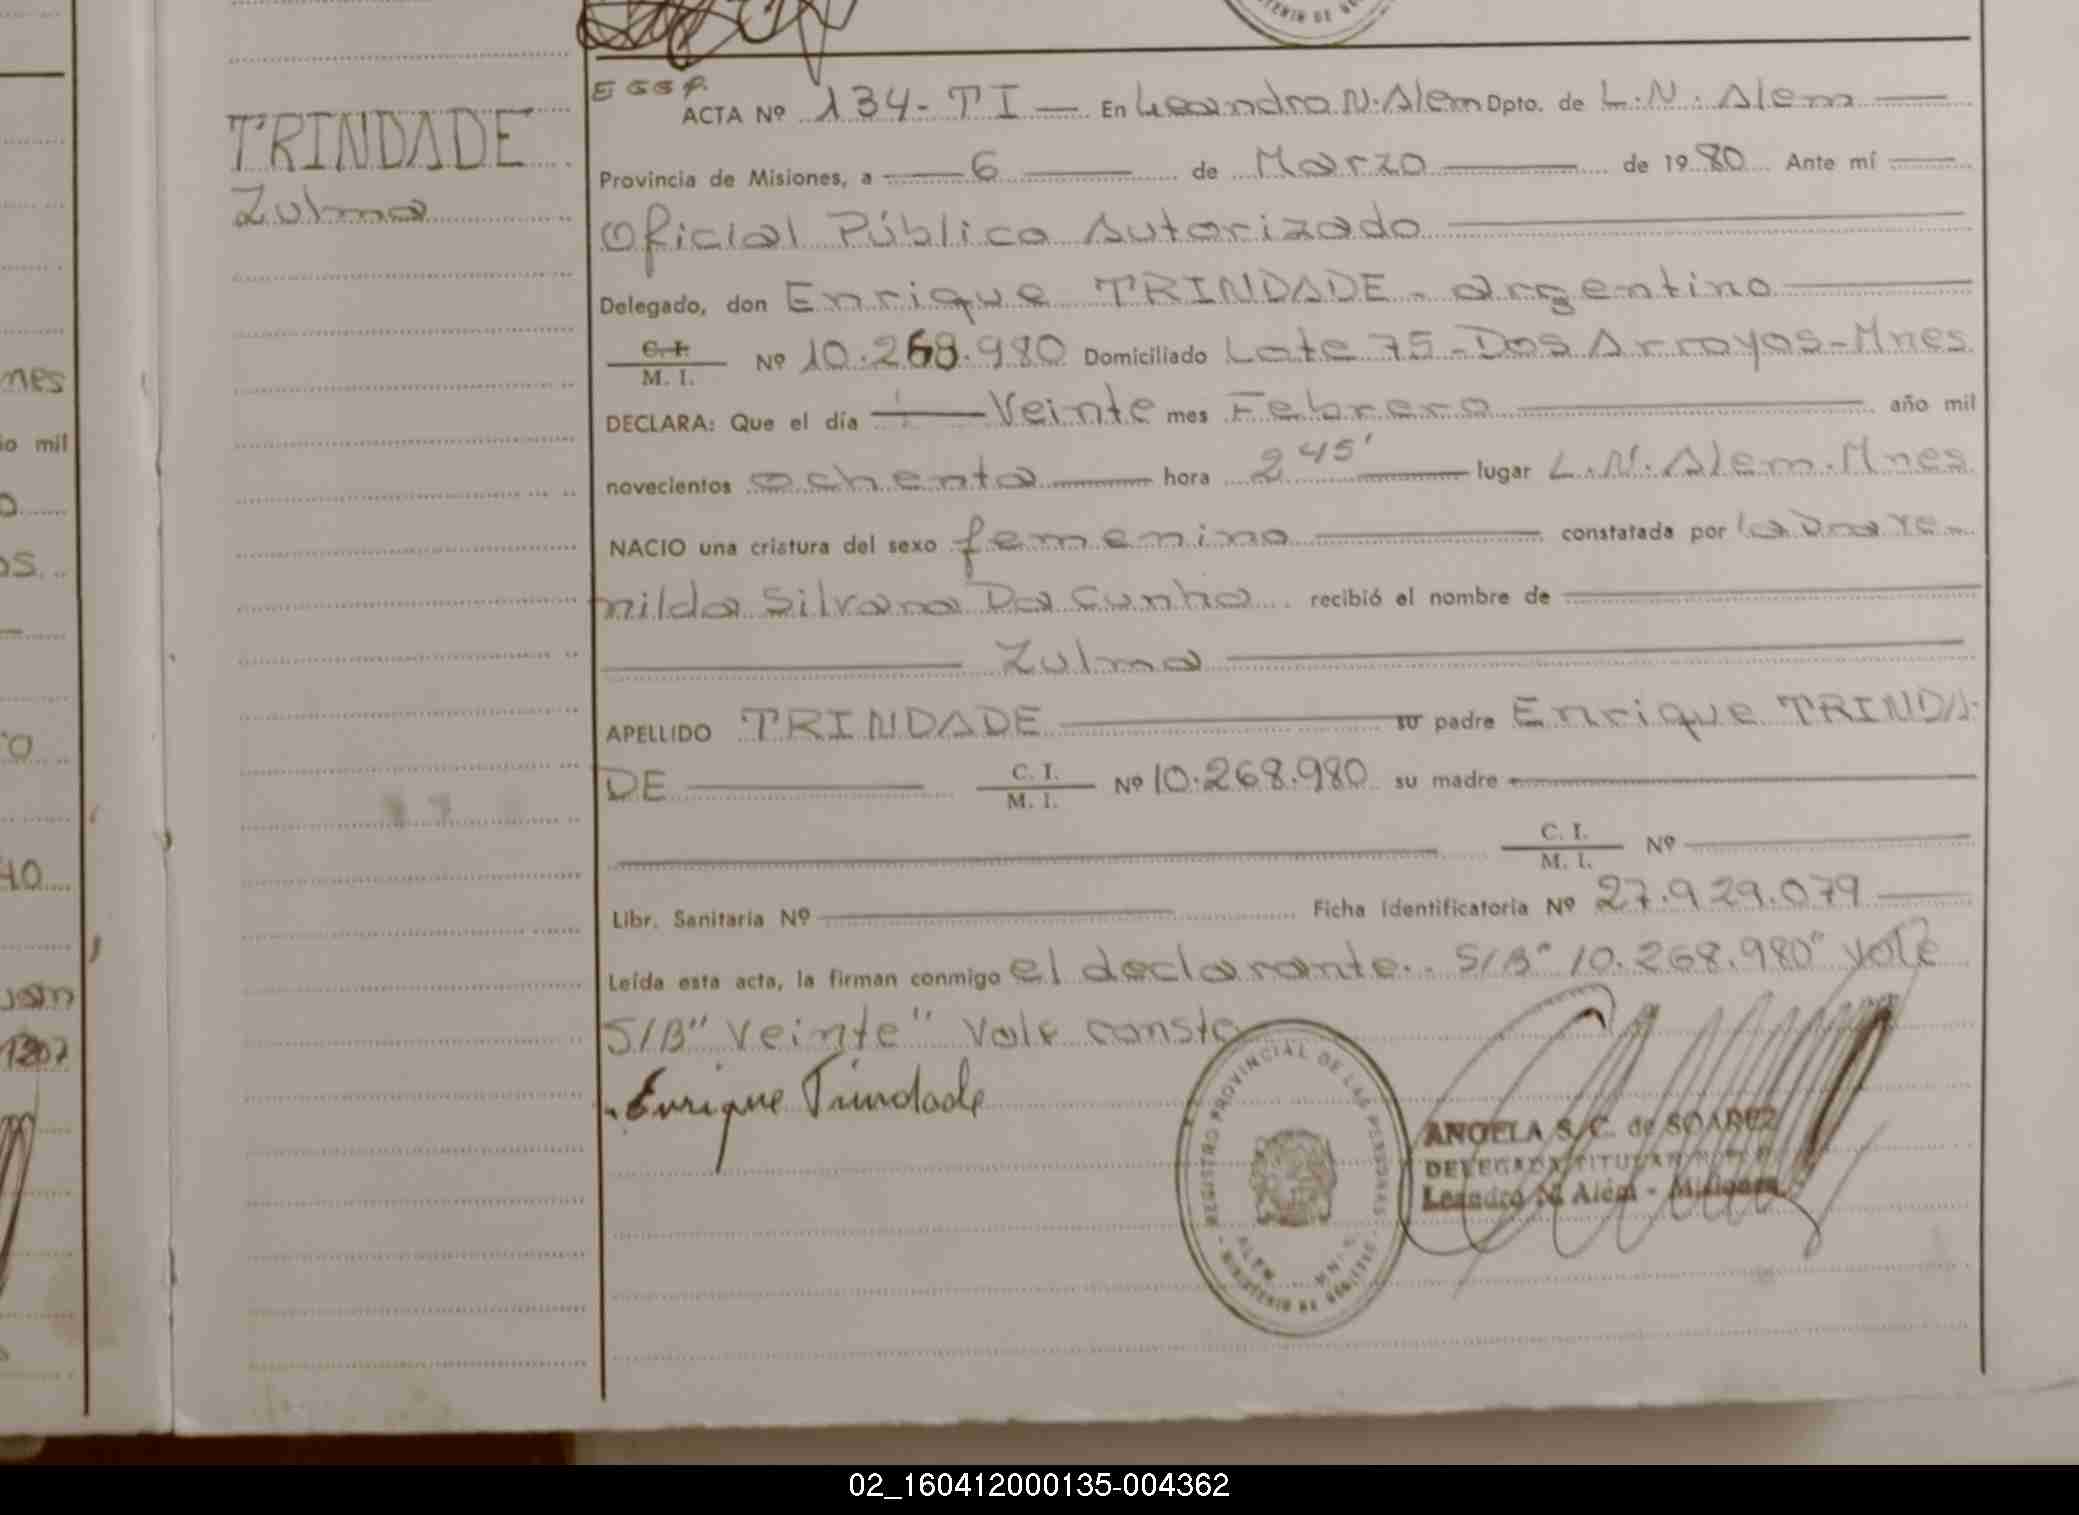 TRINDADE
Zulma
ACTA Nº 134-TI — En Leandro N. Alem Dpto. de L.N. Alem
Provincia de Misiones, a 6 de Marzo de 1980 Ante mí
Oficial Público Autorizado
Delegado, don Enrique TRINDADE - argentino
C. I.
M. I. Nº 10.268.980 Domiciliado Lote 75-Dos Arroyos-Mnes
DECLARA: Que el día Veinte mes Febrero año mil
novecientos ochenta hora 2 45' lugar L.N. Alem. Mnes
NACIO una criatura del sexo femenino constatada por la Dna Ye-
nilda Silvana Da Cunha recibió el nombre de
Zulma
APELLIDO TRINDADE su padre Enrique TRINDA-
DE C. I. M. I. Nº 10.268.980 su madre
C. I. M. I. Nº
Libr. Sanitaria Nº Ficha identificatoria Nº 27.929.079
Leída esta acta, la firman conmigo el declarante. S/B" 10.268.980" Vale
S/B" Veinte" Vale conste
Enrique Trindade
REGISTRO PROVINCIAL DE LAS PERSONAS
ALEM MNES.
MINISTERIO DE GOBIERNO
ANGELA S. C. de SOAREZ
DELEGADA TITULAR
Leandro N. Além - Misiones
02_160412000135-004362